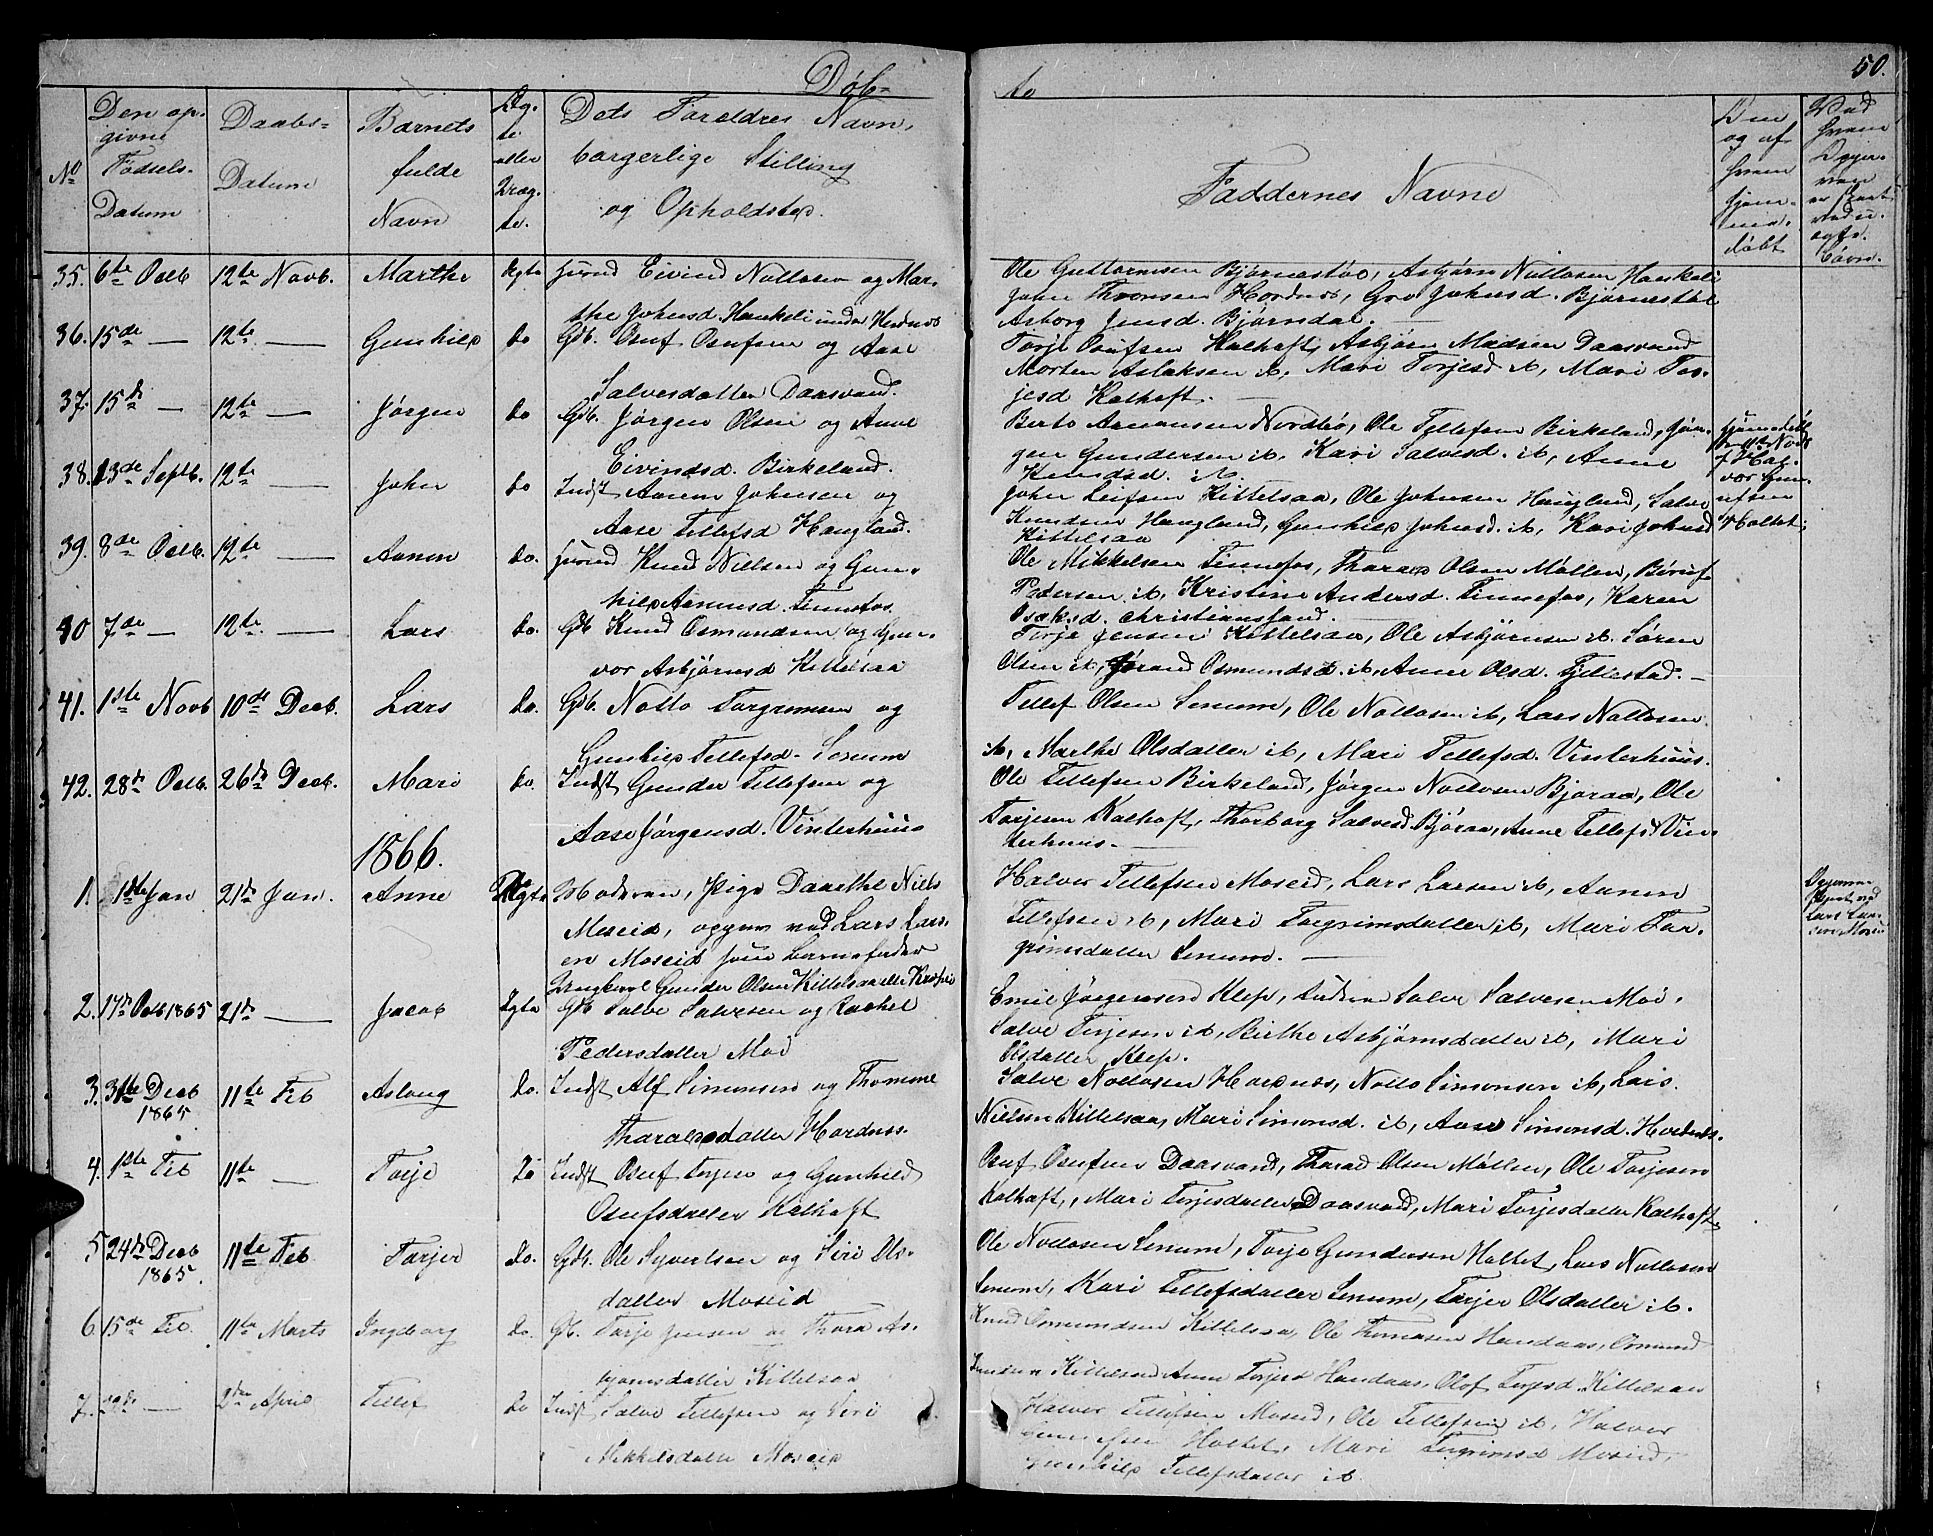 Døb-
te
50.
No
Den op-
givne
Fødsels-
Datum
Daabs-
Datum
Barnets
fulde
Navn
Æg-
te
eller
Uæg-
te.
Dets Foreldres Navn,
borgerlige Stilling
og Opholdsted.
Faddernes Navne
og af
hvem
hjem-
me-
døbt
Ved
hvem
er
35. 6te Octb. 12te Novb. Marthe Ægte Huusmd Eivind Nottosen og Mar-
the Johnsd Haukeli under Hordnes
Ole Guttormsen Bjørnestøl, Asbjørn Nottosen Haukeli
John Thronsen Hordnes, Gro Johnsd. Bjørnestøl
Asborg Jensd. Bjørndal.
36. 15de — 12te — Gunhild do Gdb. Osuf Osufsen og Aase
Salvesdatter Daasvand.
Torje Osufsen Kalhoft, Asbjørn Madsen Daasvand
Morten Aslaksen ib, Mari Torjesd ib, Mari Tor-
jesd Kalhoft.
37. 15de — 12te — Jørgen do Gdb. Jørgen Olsen og Anne
Eivindsd. Birkeland.
Berto Aanansen Nordbø, Ole Tellefsen Birkeland, Jør-
gen Gundersen ib, Kari Salvesd. ib, Anne
Knudsd. ib.
38. 13de Septb. 12te — John do Indst Aanon Johnsen og
Aase Tellefsd Haugland.
John Leifsen Kittelsaa, Ole Johnsen Haugland, Salve
Knudsen Haugland, Gunhild Johnsd. ib, Kari Johnsd
Kittelsaa
Holtet
39. 8de Octb. 12te — Aanon do. Huusmd Knud Nielsen og Gun-
hild Aanensd. Tinnefos.
Ole Mikkelsen Tinnefos, Tharald Olsen Møllen, Berulf
Pedersen ib, Kristine Andersd. Tinnefos, Karen
Isaksd. Christianssand.
40 7de — 12te — Lars do. Gdb Knud Osmundsen og Gun-
vor Asbjørnsd Kittelsaa
Torje Jensen Kittelsaa, Ole Asbjørnsen ib. Søren
Olsen ib, Jorand Osmundsd. ib, Anne Olsd. Fjellestad.
41. 1ste Novb 10de Decb. Lars do. Gdb. Notto Torgrimsen og
Gunhild Tellefsd. Senum
Tellef Olsen Senum, Ole Nottosen ib, Lars Nottosen
ib, Marthe Olsdatter ib, Mari Tellefsd. Vinterhuus.
42. 28de Octb. 26de Decb. Mari do. Indst Gunder Tellefsen og
Aase Jørgensd. Vinterhuus
Ole Tellefsen Birkeland, Jørgen Nottosen Bjøraa, Ole
Torjesen Kalhoft, Thorborg Salvesd. Bjøraa, Anne Tellefsd Vin-
terhuus.
1866.
1. 1ste Jan 21de Jan. Anne Uægte Moderen, Pige Daarthe Niels
Moseid, opgiven ved Lars Lars-
en Moseid som Barnefader
Halvor Tellefsen Moseid, Lars Larsen ib, Aanon
Tellefsen ib, Mari Torgrimsdatter ib, Mari Tor-
grimsdatter Senum.
Lars Lar-
sen Moseid
Ungkarl Gunder Olsen Kittelsaa
2. 17de Octb 1865 21de — Jacob Ægte Gdb Salve Salvesen og Rachel
Pedersdatter Moi
Emil Jørgensen Klep, Salve Salvesen Moi,
Salve Torjesen ib, Birthe Asbjørnsdatter ib, Mari
Olsdatter Klep.
3. 31te Decb
1865 11te Feb Aslaug do. Indst Alf Simonsen og Thomme
Tharaldsdatter Hordnes.
Salve Nottosen Hordnes, Notto Simonsen ib, Lars
Nielsen Kittelsaa, Mari Simonsd. ib, Aase Simonsd. Hordnes.
4. 1ste Feb 11te — Torje do Indst Osuf Torjes og Gunhild
Osufsdatter Kalhoft
Osuf Osufsen Daasvand, Tharald Olsen Møllen, Ole Torjesen
Kalhoft, Mari Torjesdatter Daasvand, Mari Torjesdatter Kalhoft,
5 24de Decb
1865. 11te Feb Torjer do. Gdb. Ole Syvertsen og Siri Ols-
datter Moseid
Ole Nottosen Senum, Torje Gundersen Holtet, Lars Nottosen
Senum, Kari Tellefsdatter Senum, Torjer Olsdatter ib.
6. 15de Feb. 11te Marts Ingeborg do. Gdb. Torje Jensen og Thora As-
bjørnsdatter Kittelsaa
Knud Osmundsen Kittelsaa, Ole Thomasen Handaas, Osmund
Knudsen Kittelsaa Anne Torjesd Handaas, Olof Torjesd Kittelsaa
7. — 2den April Tellef do Indst Salve Tellefsen og Siri
Mikkelsdatter Moseid
Halvor Tellefsen Moseid, Ole Tellefsen ib, Halvor
Gunufsen Holtet, Mari Torgrimsd Moseid,
Gunhild Tellefsdatter ib.